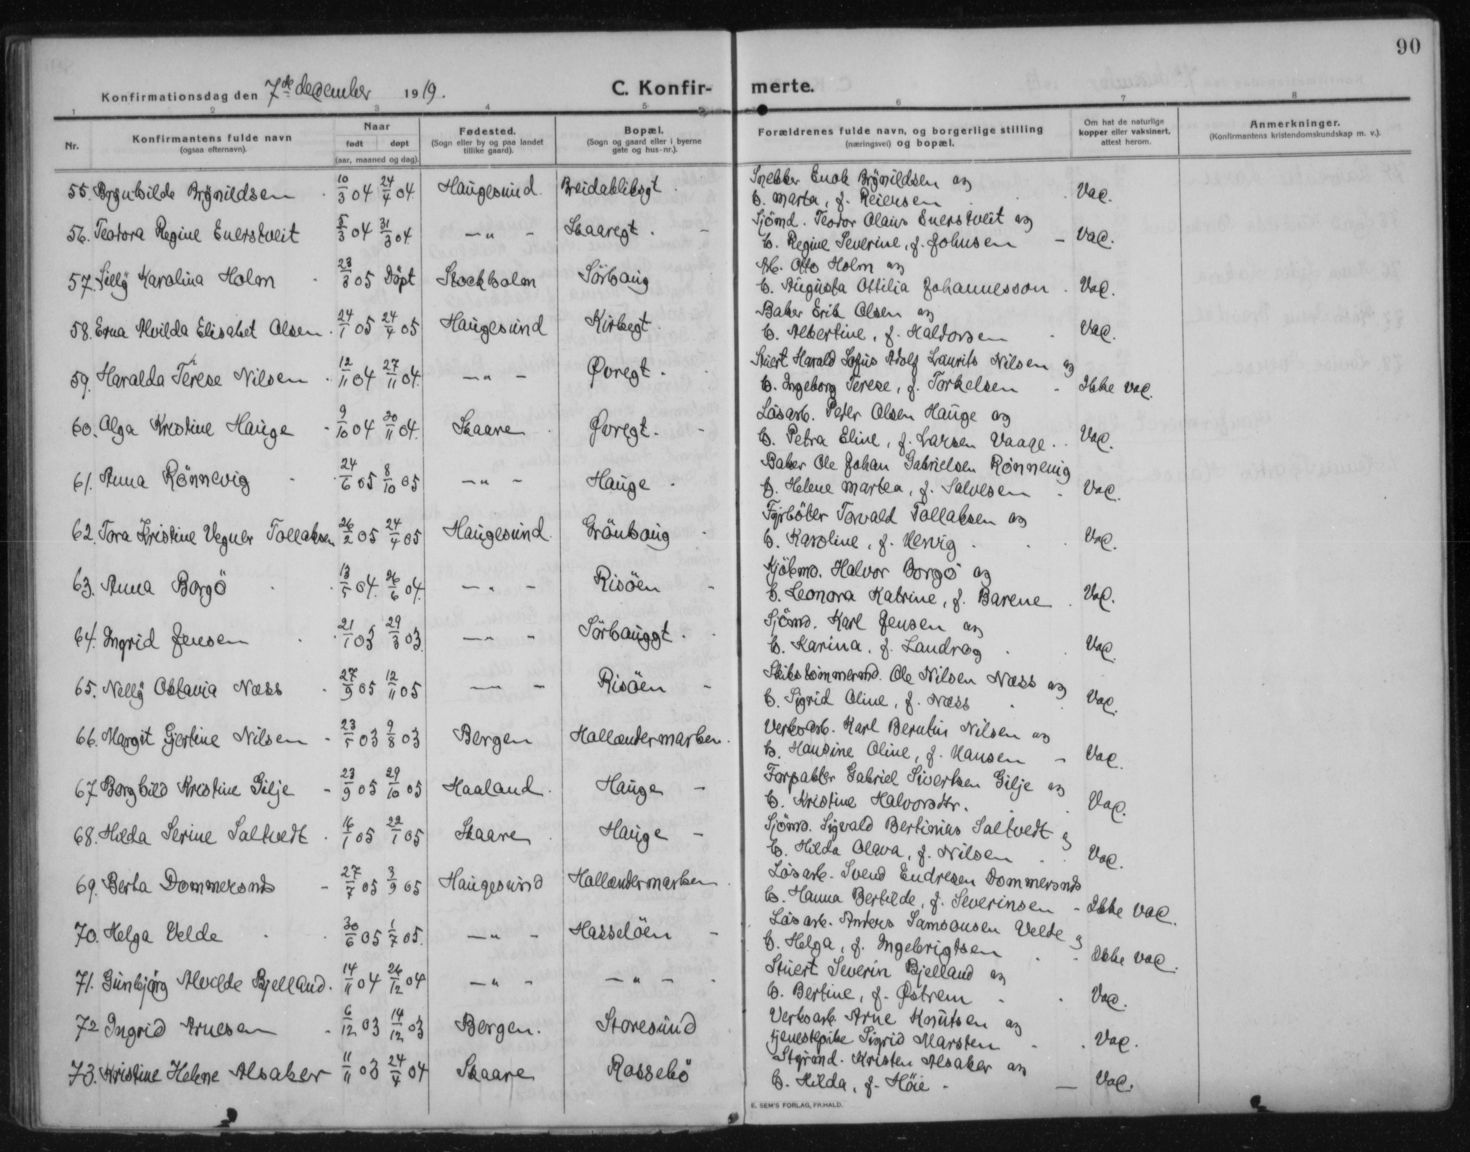 90
Konfirmationsdag den 7de december 1919.
C. Konfirmerte.
1 2 3 4 5 6 7 8
Nr.
Konfirmantens fulde navn
(ogsaa efternavn).
Naar
født døpt
(aar, maaned og dag).
Fødested.
(Sogn eller by og paa landet
tillike gaard).
Bopæl.
(Sogn og gaard eller i byerne
gate og hus-nr.).
Forældrenes fulde navn, og borgerlige stilling
(næringsvei) og bopæl.
Om hat de naturlige
kopper eller vaksinert,
attest herom.
Anmerkninger.
(Konfirmantens kristendomskundskap m. v.).
55. Brynhilde Brynildsen 10/3 04 24/4 04. Haugesund. Breidabliksgt. Snekker Enok Brynildsen og Vac.
h. Marta, f. Reiersen
56. Teodora Regine Enerstveit 5/3 04 31/3 04 —„— Skaaregt. Sjömd. Teodor Olaus Enerstveit og Vac.
h. Regine Severine, f. Johnsen
57. Lilly Karolina Holm 28/3 05 Döpt Stockholm Sørhaug Ab. Otto Holm og Vac.
h. Augusta Ottilia Johannesson.
58. Erna Alvilda Elisabet Olsen. 24/1 05 24/4 05 Haugesund Kirkegt. Baker Erik Olsen og Vac.
h. Albertine, f. Haldorsen
59. Haralda Terese Nilsen 12/11 04 27/11 04. —„— Øvregt. Stuert Harald Lofus Adolf Laurits Nilsen og Ikke vac.
h. Ingeborg Serese, f. Torkelsen
60. Olga Kristine Hauge 9/10 04 20/11 04. Skaare Øvregt. Løsarb. Peter Olsen Hauge og Vac.
h. Petra Eline, f. Larsen Vaage.
61. Anna Rönnevig 24/6 05 8/10 05 —„— Hauge Baker Ole Johan Gabrielsen Rönnevig Vac.
h. Helene Martea, f. Salvesen
62. Tora Kristine Vegner Tollaksen 26/2 05 24/4 05 Haugesund. Grönhaug Fyrböter Torvald Tollaksen og Vac.
h. Karoline, f. Hervig
63. Anna Borgö 13/5 04. 26/6 04. —„— Risöen Kjöbmd. Halvor Borgö og Vac.
h. Leonora Katrine, f. Barene
64. Ingrid Jensen 21/1 03 29/3 03. —„— Sørhauggt. Sjömd. Karl Jensen og Vac.
h. Karina, f. Landrag
65. Nelly Oktavia Næss 27/9 05 12/11 05 —„— Risöen Skibstömmermd. Ole Nilsen Næss og Vac.
h. Sigrid Oline, f. Næss
66. Margit Gjertine Nilsen 23/5 03 9/8 03 Bergen Hallændermarken. Verksarb. Karl Berntin Nilsen og Vac.
h. Hansine Oline, f. Hansen
67. Borghild Kristine Gilje 23/9 05 29/10 05 Haaland. Hauge Forpakter Gabriel Sivertsen Gilje og Vac.
h. Kristine Halvorsdtr.
68. Hilda Serine Saltvedt 16/1 05 22/1 05 Skaare Hauge Sjömd. Sigvald Bertinius Saltvedt og Vac.
h. Hilda Olava, f. Nilsen
69. Berta Dommersnds 27/7 05 3/9 05 Haugesund Hallændermarken Løsarb. Svend Endresen Dommersnds Ikke vac.
h. Hanna Bertilde, f. Severinsen
70. Helga Velde 30/6 05 1/7 05. —„— Hasselöen Løsarb. Anders Samsonsen Velde og Ikke vac.
h. Helga, f. Ingebrigtsen
71. Gunbjørg Alvilde Bjelland. 14/11 04 26/12 04 —„— —„— Stuert Severin Bjelland og Vac.
h. Bertine, f. Østrem
72 Ingrid Arnesen 6/12 03 14/12 03 Bergen. Storesund Verksarb. Arne Knutsen og Vac.
tjenestepike Sigrid Marsten
73. Kristine Helene Alsaker 11/11 03 24/4 04 Skaare Rossebö Styrmd. Kristen Alsaker og Vac.
h. Hilda, f. Höie
E. SEM'S FORLAG, FR.HALD.